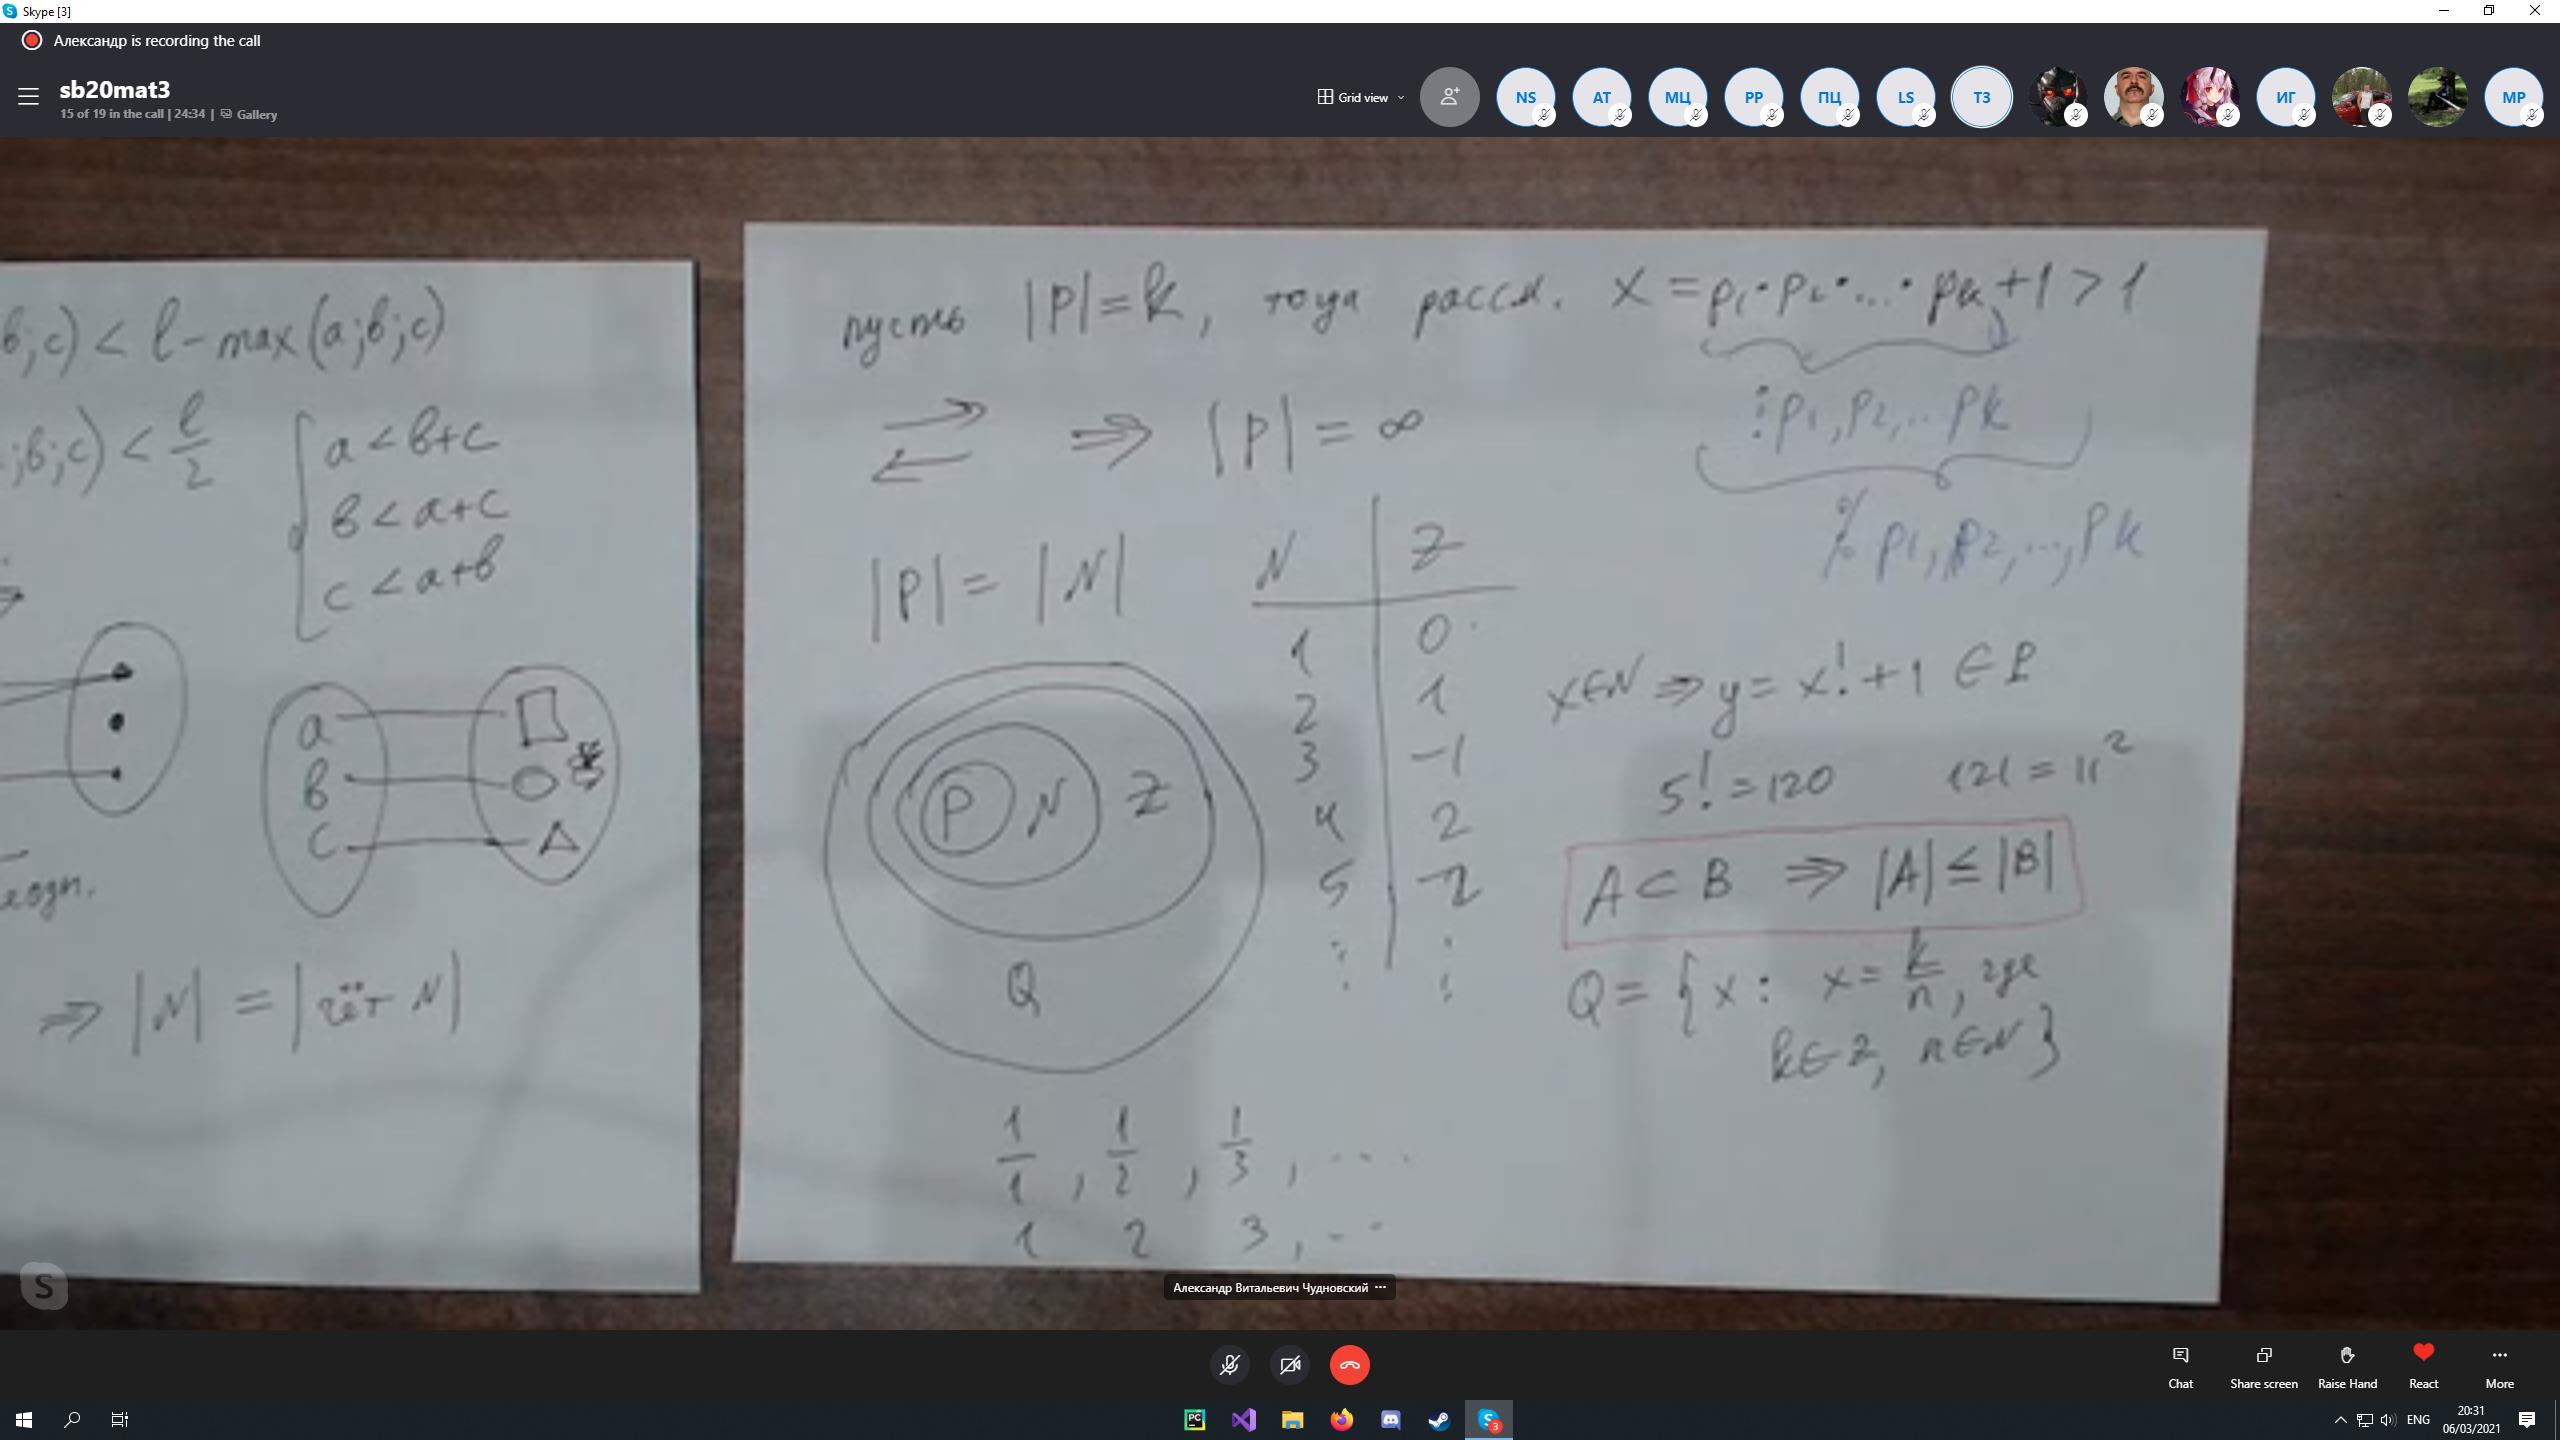 Skype [3]
Александр is recording the call
sb20mat3
15 of 19 in the call | 24:34 | Gallery
Grid view
NS AT МЦ PP ПЦ LS ТЗ ИГ MP
в;с) < l - max(a;в;с)
;в;с) < l/2
a < в+c
в < a+c
c < a+в
a
в
c
⇒ |N| = |чёт N|
пусть |P|=k, тогда рассм. x = p₁·p₂·...·pk+1 > 1
⇒ |P| = ∞
⋮ p₁, p₂, .. pk
p₁, p₂, ..., pk
|P| = |N|
N Z
1 0
2 1
3 -1
4 2
5 -2
⋮ ⋮
P N Z
Q
x∈N ⇒ y = x!+1 ∈ P
5! = 120 121 = 11²
A ⊂ B ⇒ |A| ≤ |B|
Q = { x: x = k/n, где
k∈Z, n∈N }
1/1, 1/2, 1/3, ...
1 2 3, ..
Александр Витальевич Чудновский
Chat
Share screen
Raise Hand
React
More
PC
3
ENG
20:31
06/03/2021